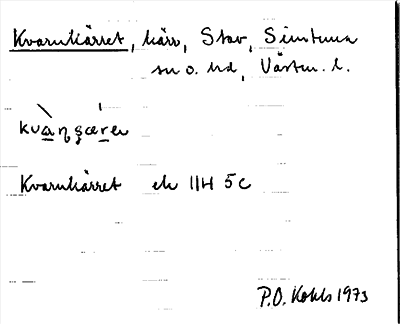 Kvarnkärret, kärr, Stav, Simtuna
sn o. hd, Västm. l.
Kvarnkärret ek 11H 5c
P.O. Kohls 1973